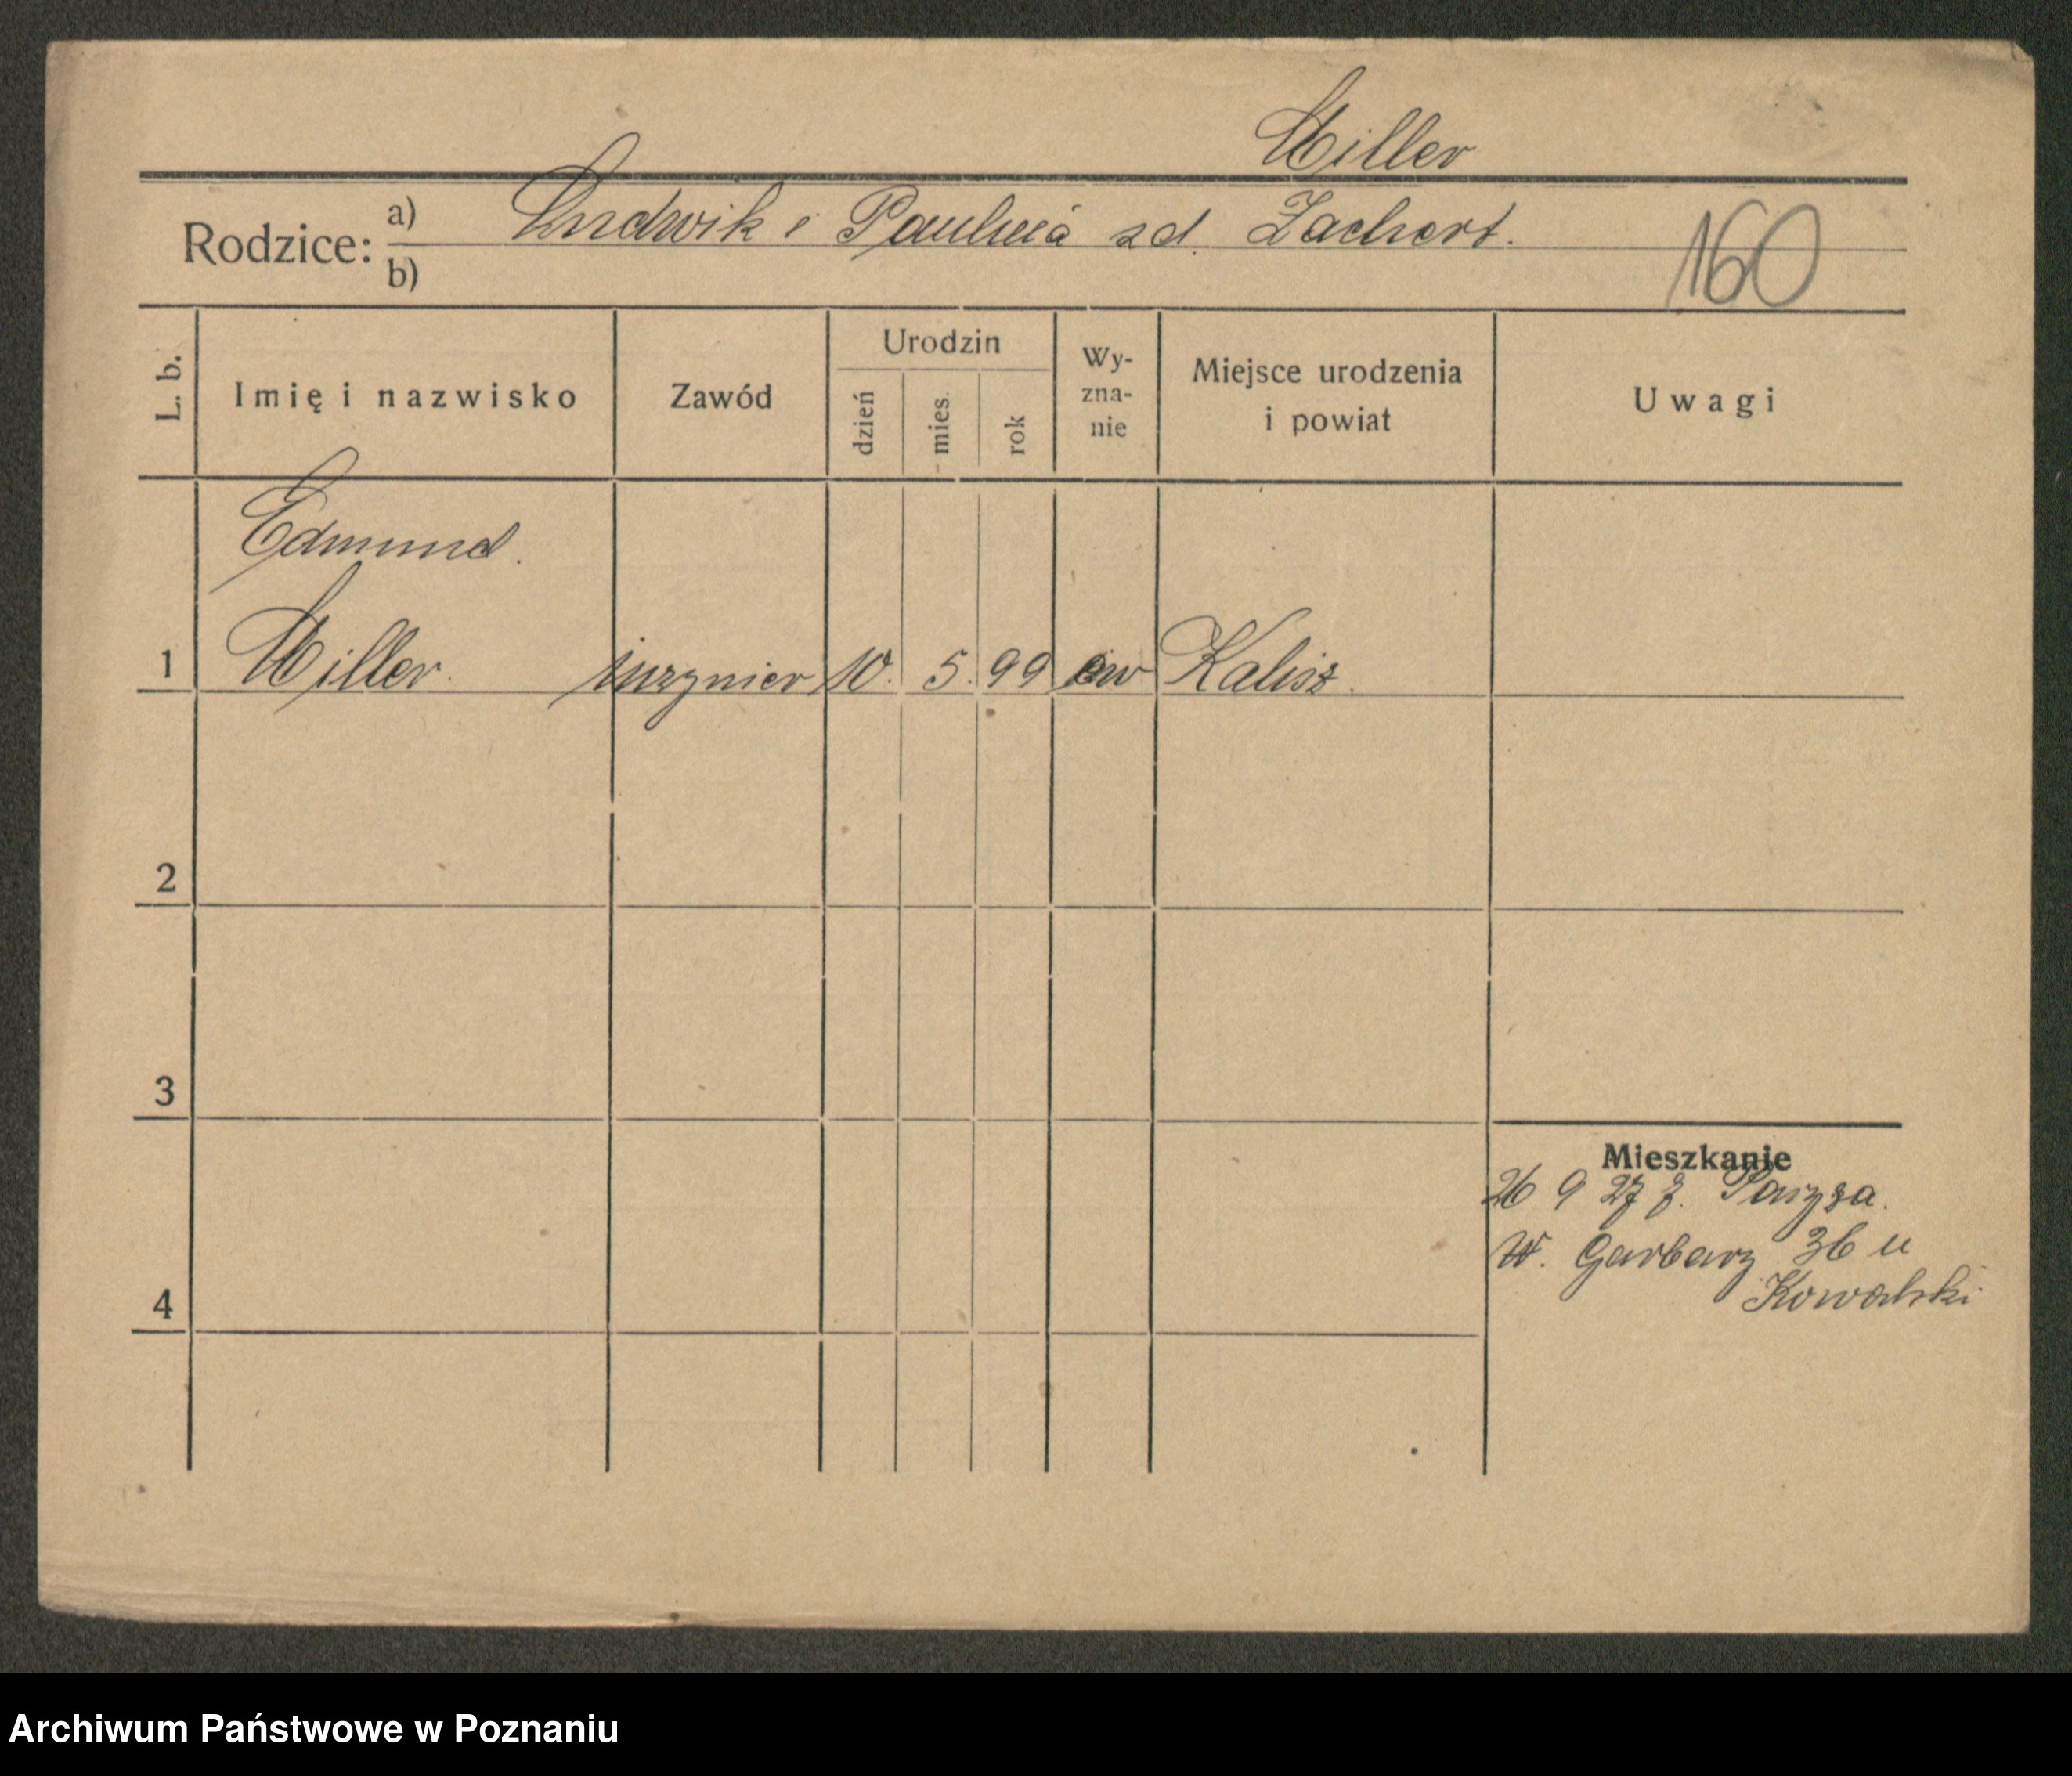 Miller
Rodzice: a) Ludwik i Paulina zd. Zachert.
b)
160
L. b.
Imię i nazwisko
Zawód
Urodzin
dzień
mies.
rok
Wy-
zna-
nie
Miejsce urodzenia
i powiat
Uwagi
Edmund.
1 Miller. inzynier 10. 5. 99 ew Kalisz.
2
3
Mieszkanie
26 9 27 z. Paryża.
W. Garbary 36 u
Kowalski
4
Archiwum Państwowe w Poznaniu